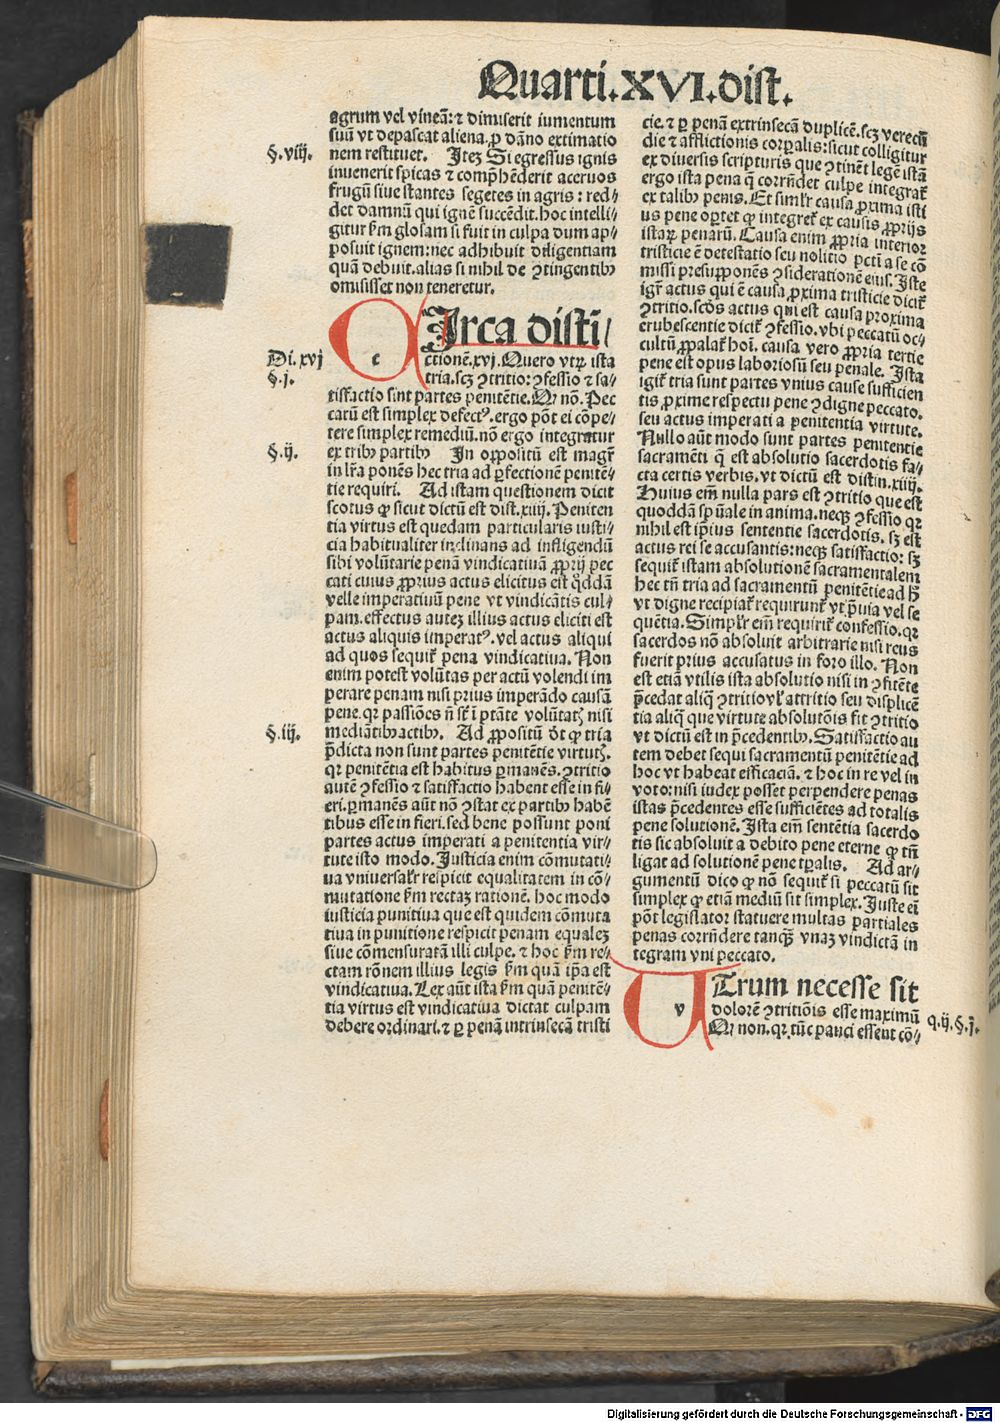 Quarti.XVI.dist.
agrum vel vineā: ⁊ dimiserit iumentum
suū vt depascat aliena. ꝓ dāno extimatio
§.viij.
nem restituet. Itez Si egressus ignis
inuenerit spicas ⁊ compħēderit aceruos
frugū siue stantes segetes in agris: red/
det damnū qui ignē succēdit. hoc intelli/
gitur ẜm glosam si fuit in culpa dum ap/
posuit ignem: nec adhibuit diligentiam
quā debuit. alias si nihil de ↄtingentibꝰ
omisisset non teneretur.
c
Irca disti̅/
Di. xvj
ctionē.xvj. Quero vtꝝ ista
§.j.
tria. scz ↄtritio: ↄfessio ⁊ sa/
tisfactio sint partes penitētie. Q̄ nō. Pec
catū est simplex defectꝰ. ergo pōt ei cōpe/
tere simplex remediū. nō ergo integratur
§.ij.
ex tribꝰ partibꝰ In oppositū est magr̄
in lr̄a ponēs hec tria ad ꝑfectionē penitē/
tie requiri. Ad istam questionem dicit
scotus ꝙ sicut dictū est dist.xiiij. Peniten
tia virtus est quedam particularis iusti/
cia habitualiter inclinans ad infligendū
sibi volūtarie penā vindicatiuā ꝓprij pec
cati cuius ꝓprius actus elicitus est qddā
velle imperatiuū pene vt vindicātis cul/
pam. effectus autez illius actus eliciti est
actus aliquis imperatꝰ. vel actus aliqui
ad quos sequit̄ pena vindicatiua. Non
enim potest volūtas per actū volendi im
perare penam nisi prius imperādo causā
pene. qꝛ passiōes n̄ st̄ ī ptāte volūtatꝭ nisi
§.iij.
mediātibꝰ actibꝰ. Ad ꝓpositū ōt ꝙ tria
p̄dicta non sunt partes penitētie virtutꝭ.
qꝛ penitētia est habitus ꝑmanēs. ↄtritio
autē ↄfessio ⁊ satisfactio habent esse in fi/
eri. ꝑmanēs aūt nō ↄstat ex partibꝰ habē
tibus esse in fieri. sed bene possunt poni
partes actus imperati a penitentia vir/
tute isto modo. Justicia enim cōmutati/
ua vniuersalr̄ respicit equalitatem in cō/
mutatione ẜm rectaz rationē. hoc modo
iusticia punitiua que est quidem cōmuta
tiua in punitione respicit penam equalez
siue cōmensuratā illi culpe. ⁊ hoc ẜm re/
ctam rōnem illius legis ẜm quā ip̄a est
vindicatiua. Lex aūt ista ẜm quā penitē/
tia virtus est vindicatiua dictat culpam
debere ordinari. ⁊ ꝑ penā intrinsecā tristi
cie. ⁊ ꝑ penā extrinsecā duplicē. scz verecū
die ⁊ afflictionis corꝑalis: sicut colligitur
ex diuersis scripturis que ↄtinēt legē istā
ergo ista pena q̄ corrn̄det culpe integrat̄
ex talibꝰ penis. Et simlr̄ causa ꝓxima isti
us pene optet ꝙ integret̄ ex causis ꝓprijs
istaꝝ penarū. Causa enim ꝓpria interior
tristicie ē detestatio seu nolitio pctī a se cō
missi presupponēs ↄsiderationē eius. Iste
igr̄ actus qui ē causa ꝓxima tristicie dicit̄
ↄtritio. scdōs actus qui est causa proxima
erubescentie dicit̄ ↄfessio. vbi peccatū oc/
cultū ꝓpalat̄ hoī. causa vero ꝓpria tertie
pene est opus laboriosū seu penale. Ista
igit̄ tria sunt partes vnius cause sufficien
tis ꝓxime respectu pene ↄdigne peccato.
seu actus imperati a penitentia virtute.
Nullo aūt modo sunt partes penitentie
sacramēti q̄ est absolutio sacerdotis fa/
cta certis verbis. vt dictū est distin.xiiij.
Huius em̄ nulla pars est ↄtritio que est
quoddā sp̄uale in anima. neqꝫ ↄfessio qꝛ
nihil est ip̄ius sententie sacerdotis. sꝫ est
actus rei se accusantis: neqꝫ satisfactio: sꝫ
sequit̄ istam absolutionē sacramentalem
hec tn̄ tria ad sacramentū penitētie ad ħ
vt digne recipiat̄ requirunt̄ vt p̄uia vel se
quētia. Simplr̄ em̄ requirit̄ confessio. qꝛ
sacerdos nō absoluit arbitrarie nisi reus
fuerit prius accusatus in foro illo. Non
est etiā vtilis ista absolutio nisi in ↄfitēte
p̄cedat aliq̄ ↄtritio vl̓ attritio seu displicē
tia aliq̄ que virtute absolutōis fit ↄtritio
vt dictū est in p̄cedentibꝰ. Satisfactio au
tem debet sequi sacramentū penitētie ad
hoc vt habeat efficaciā. ⁊ hoc in re vel in
voto: nisi iudex posset perpendere penas
istas p̄cedentes esse sufficiētes ad totalis
pene solutionē. Ista em̄ sentētia sacerdo
tis sic absoluit a debito pene eterne ꝙ tn̄
ligat ad solutionē pene tꝑalis. Ad ar/
gumentū dico ꝙ nō sequit̄ si peccatū sit
simplex ꝙ etiā mediū sit simplex. Juste ei̅
pōt legislator statuere multas partiales
penas corrn̄dere tanqꝫ vnaz vindictā in
tegram vni peccato.
v
Trum necesse sit
dolorē ↄtritiōis esse maximū
q.ij.§.j.
Q̄ non. qꝛ tūc pauci essent cō/
Digitalisierung gefördert durch die Deutsche Forschungsgemeinschaft - DFG